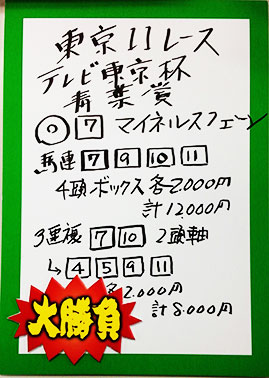 東京11レース
テレビ東京杯
青葉賞
◎ 7 マイネルスフェーン
馬連 7 9 10 11
4頭ボックス各2,000円
計12,000円
3連複 7 10 2頭軸
↳ 4 5 9 11
各2,000円
計8,000円
大勝負